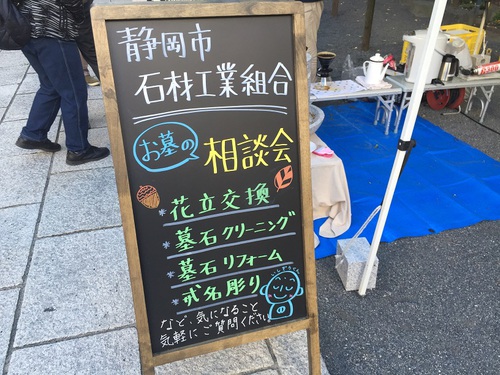 静岡市
石材工業組合
お墓の
相談会
*花立交換
*墓石クリーニング
*墓石リフォーム
*戒名彫り
など、気になること
気軽にご質問ください